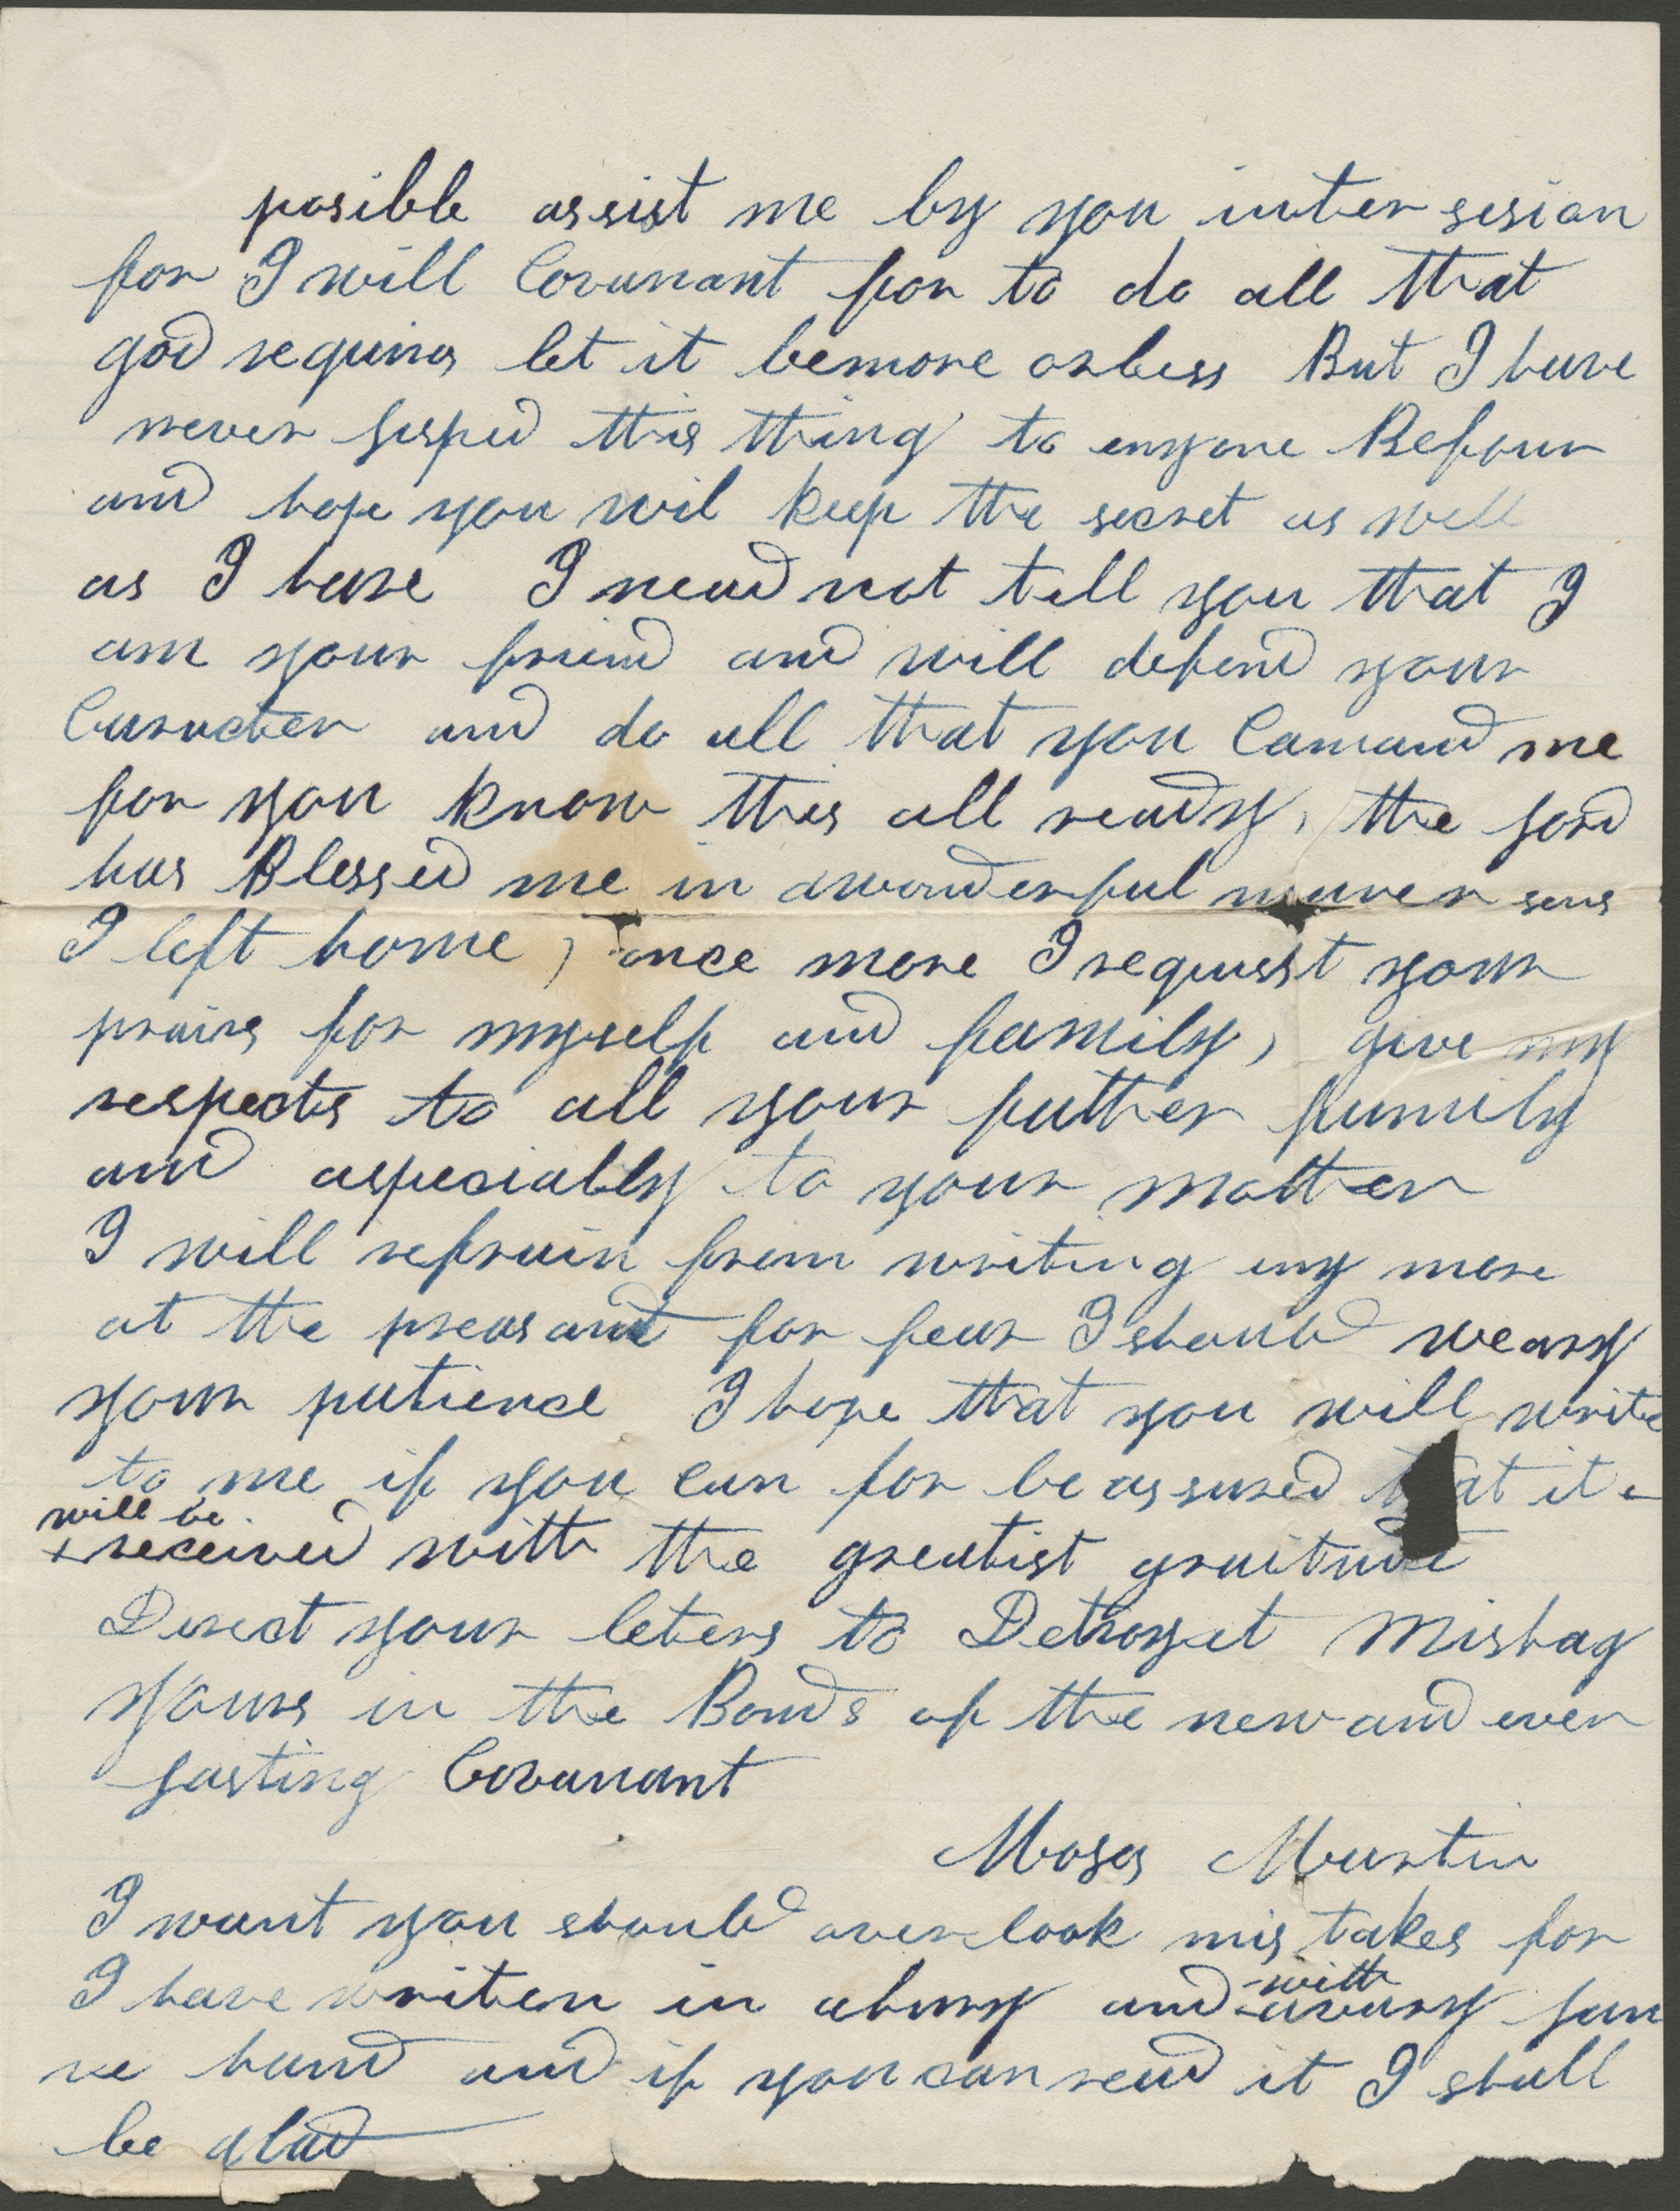 posible assist me by you inter sesion
for I will Covunant for to do all that
god requires let it bemore orless But I have
never lisped this thing to enyone Befour
and hope you wil keep the secret as well
as I have I nead not tell you that I
am your friend and will defend your
Caracter and do all that you Camand me
for you know this all ready, the lord
has Blessed me in awonderful maner sens
I left home, once more I requist your
prairs for myself and family, give my
respects to all your father family
and aspecialy to your mother
I will refrain from writing eny more
at the preasant for fear I should weary
your patience I hope that you will write
to me if you can for be assured that it
will be
received with the greatist graitude
Direct your leters to Detroyet Mishag
Yours in the Bonds of the new and ever
lasting Covanant
Moses Martin
I want you should over look mis takes for
I have writen in ahury and
with
avary lam
re hand and if you can read it I shall
be glad